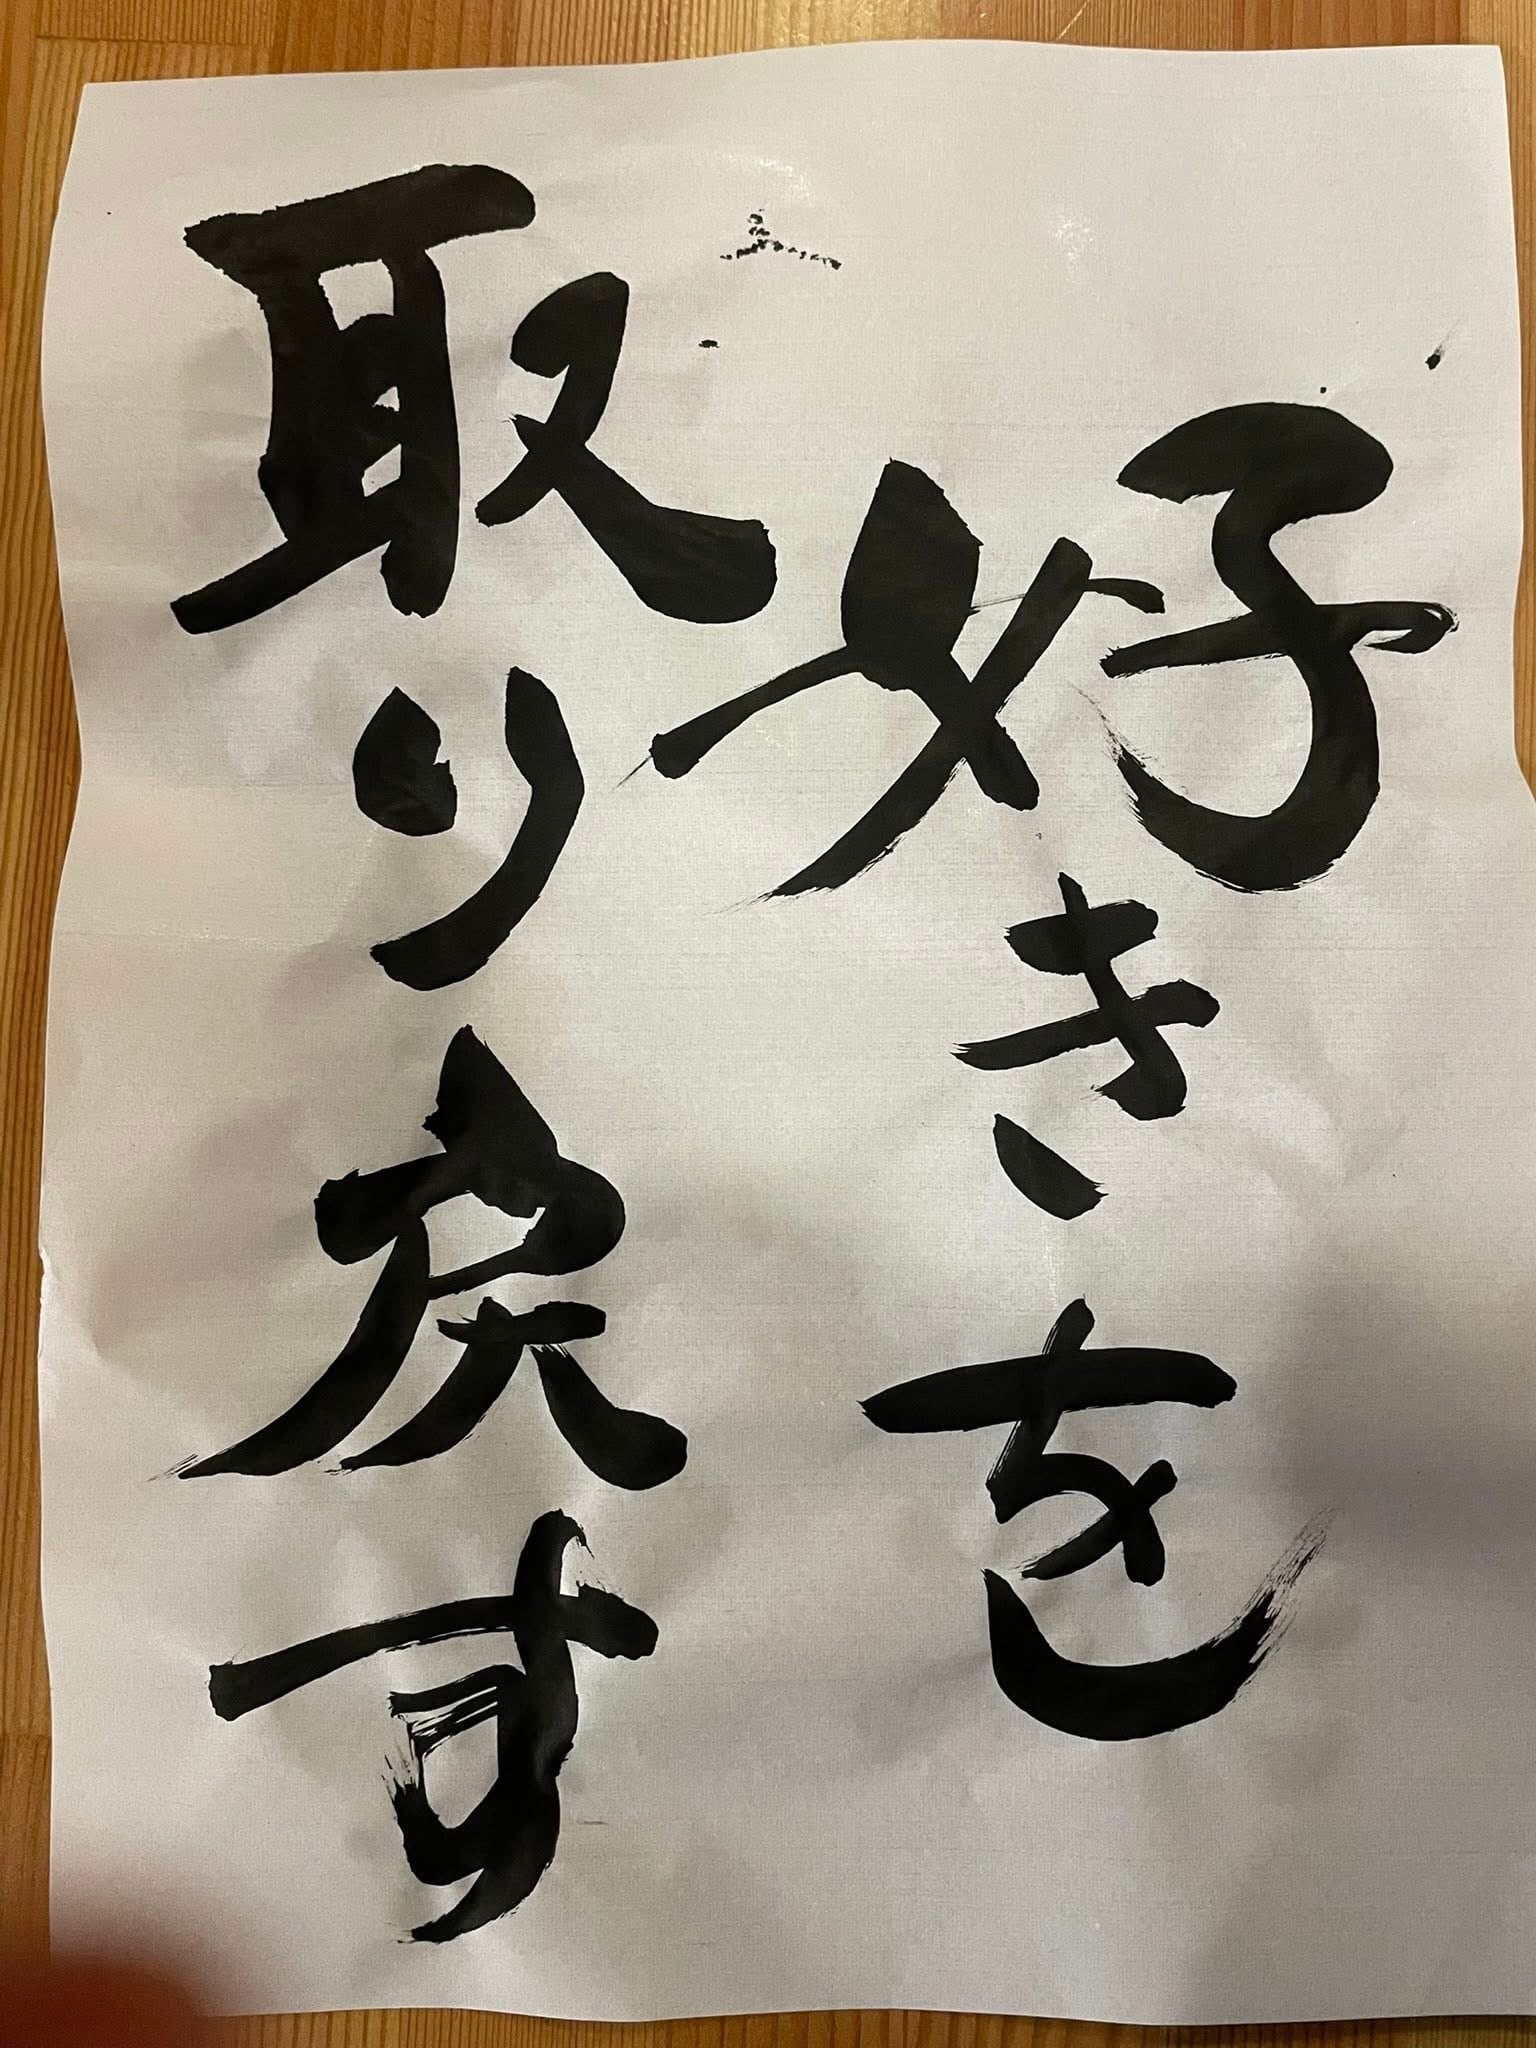 好きを
取り戻す